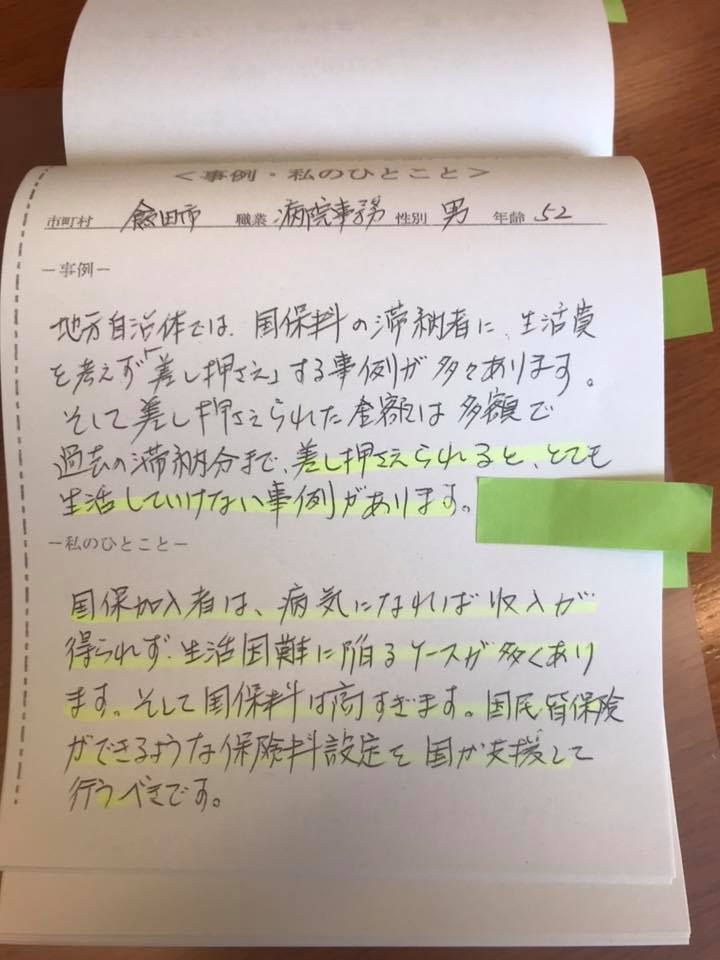 ＜事例・私のひとこと＞
市町村 飯田市 職業 病院事務 性別 男 年齢 52
－事例－
地方自治体では、国保料の滞納者に、生活費
を考えず「差し押さえ」する事例が多々あります。
そして差し押さえられた金額は多額で
過去の滞納分まで、差し押さえられると、とても
生活していけない事例があります。
－私のひとこと－
国保加入者は、病気になれば収入が
得られず、生活困難に陥るケースが多くあり
ます。そして国保料は高すぎます。国民皆保険
ができるような保険料設定を国が支援して
行うべきです。